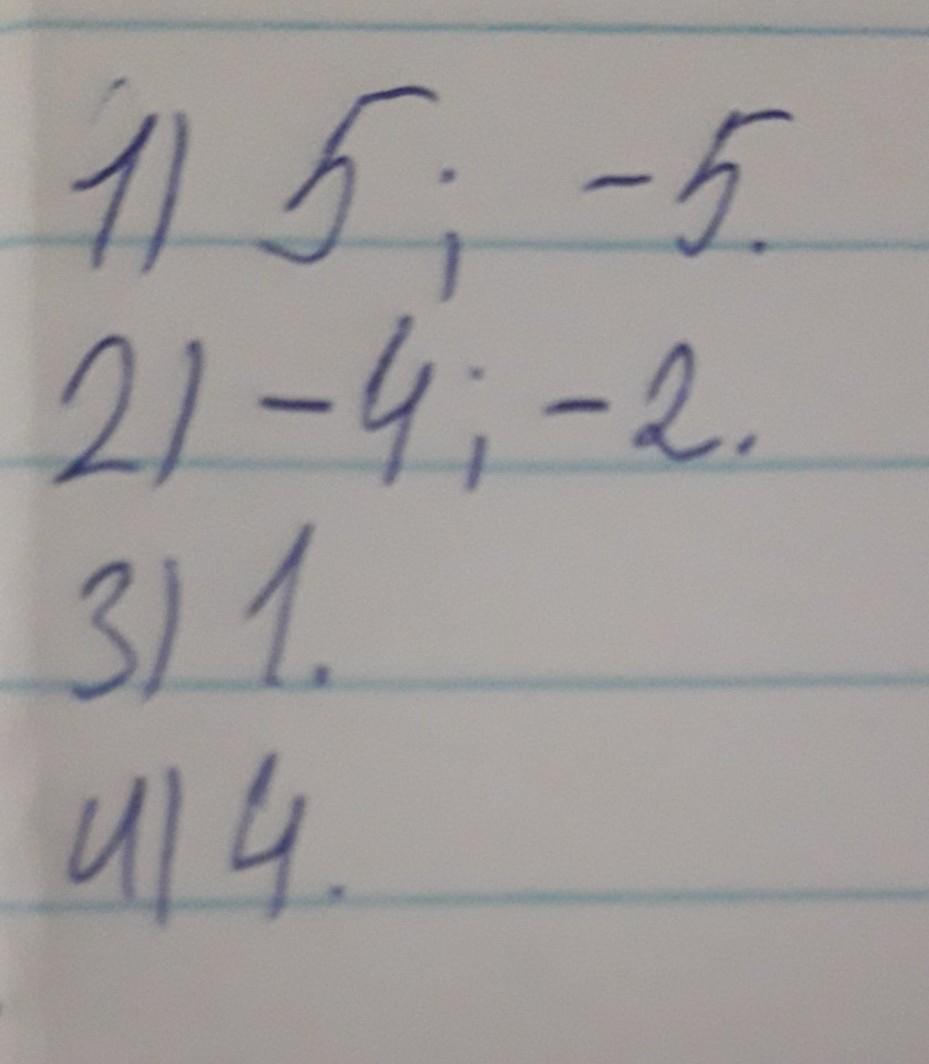 1) 5; -5.
2) -4; -2.
3) 1.
4) 4.